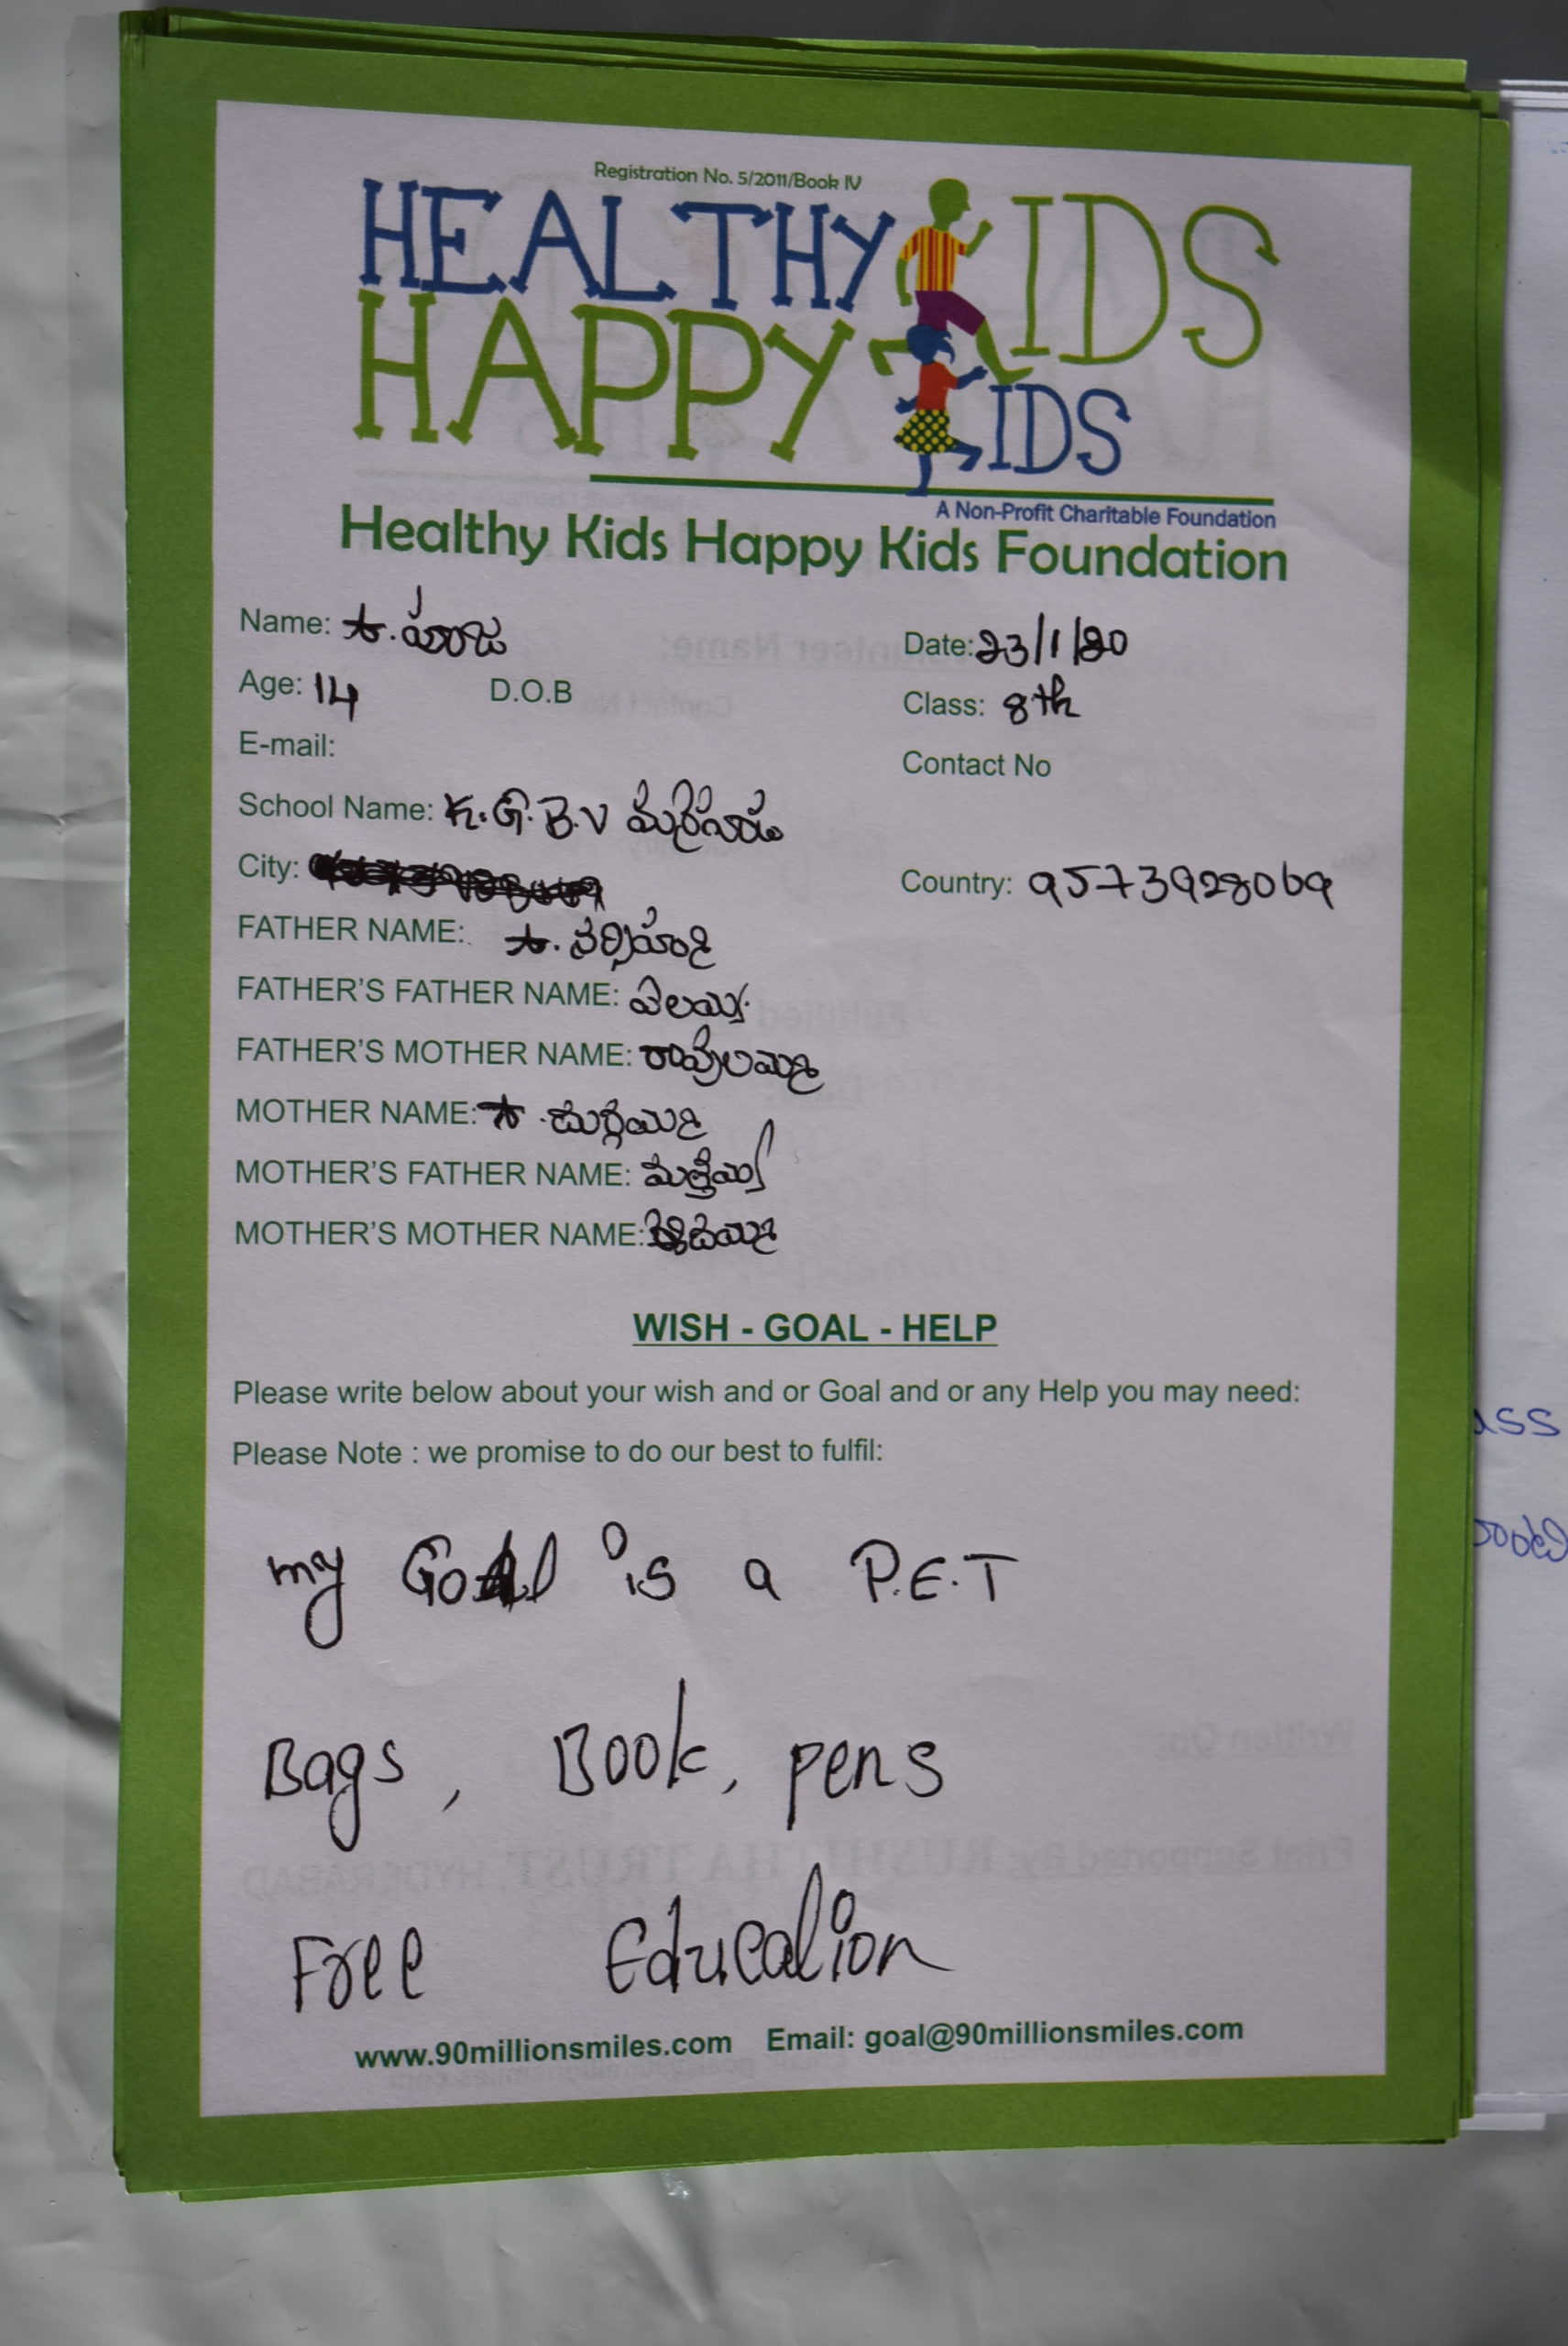 Registration No. 5/2011/Book IV
HEALTHY KIDS
HAPPY KIDS
A Non-Profit Charitable Foundation
Healthy Kids Happy Kids Foundation
Name: Date: 23/1/20
Age: 14 D.O.B Class: 8th
E-mail: Contact No
School Name: K.G.B.V
City: Country: 9573928069
FATHER NAME:
FATHER'S FATHER NAME:
FATHER'S MOTHER NAME: రావులమ్మ
MOTHER NAME:
MOTHER'S FATHER NAME:
MOTHER'S MOTHER NAME:
WISH - GOAL - HELP
Please write below about your wish and or Goal and or any Help you may need:
Please Note : we promise to do our best to fulfil:
my Goal is a P.E.T
Bags, Book, pens
Free Education
www.90millionsmiles.com Email: goal@90millionsmiles.com